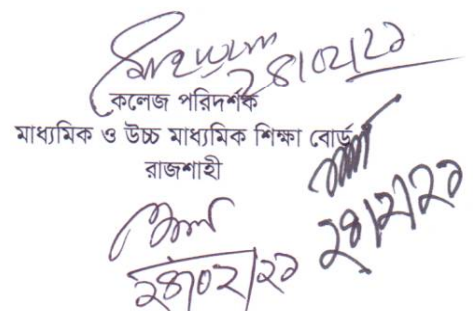 ২৪/০২/২১
কলেজ পরিদর্শক
মাধ্যমিক ও উচ্চ মাধ্যমিক শিক্ষা বোর্ড
রাজশাহী
২৪/২/২১
২৪/০২/২১